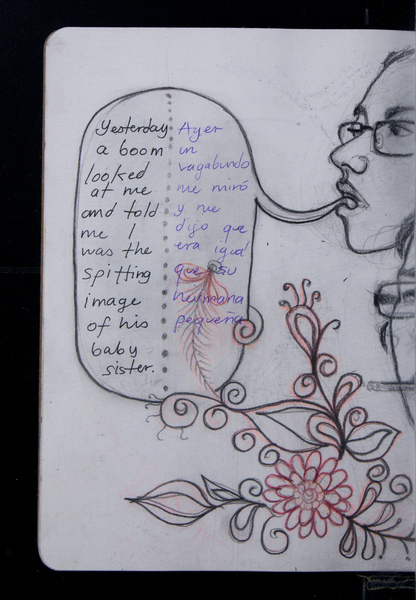 Yesterday
a boom
looked
at me
and told
me I
was the
spitting
image
of his
baby
sister.
Ayer
un
vagabundo
me miró
y me
dijo que
era igual
que su
hermana
pequeña